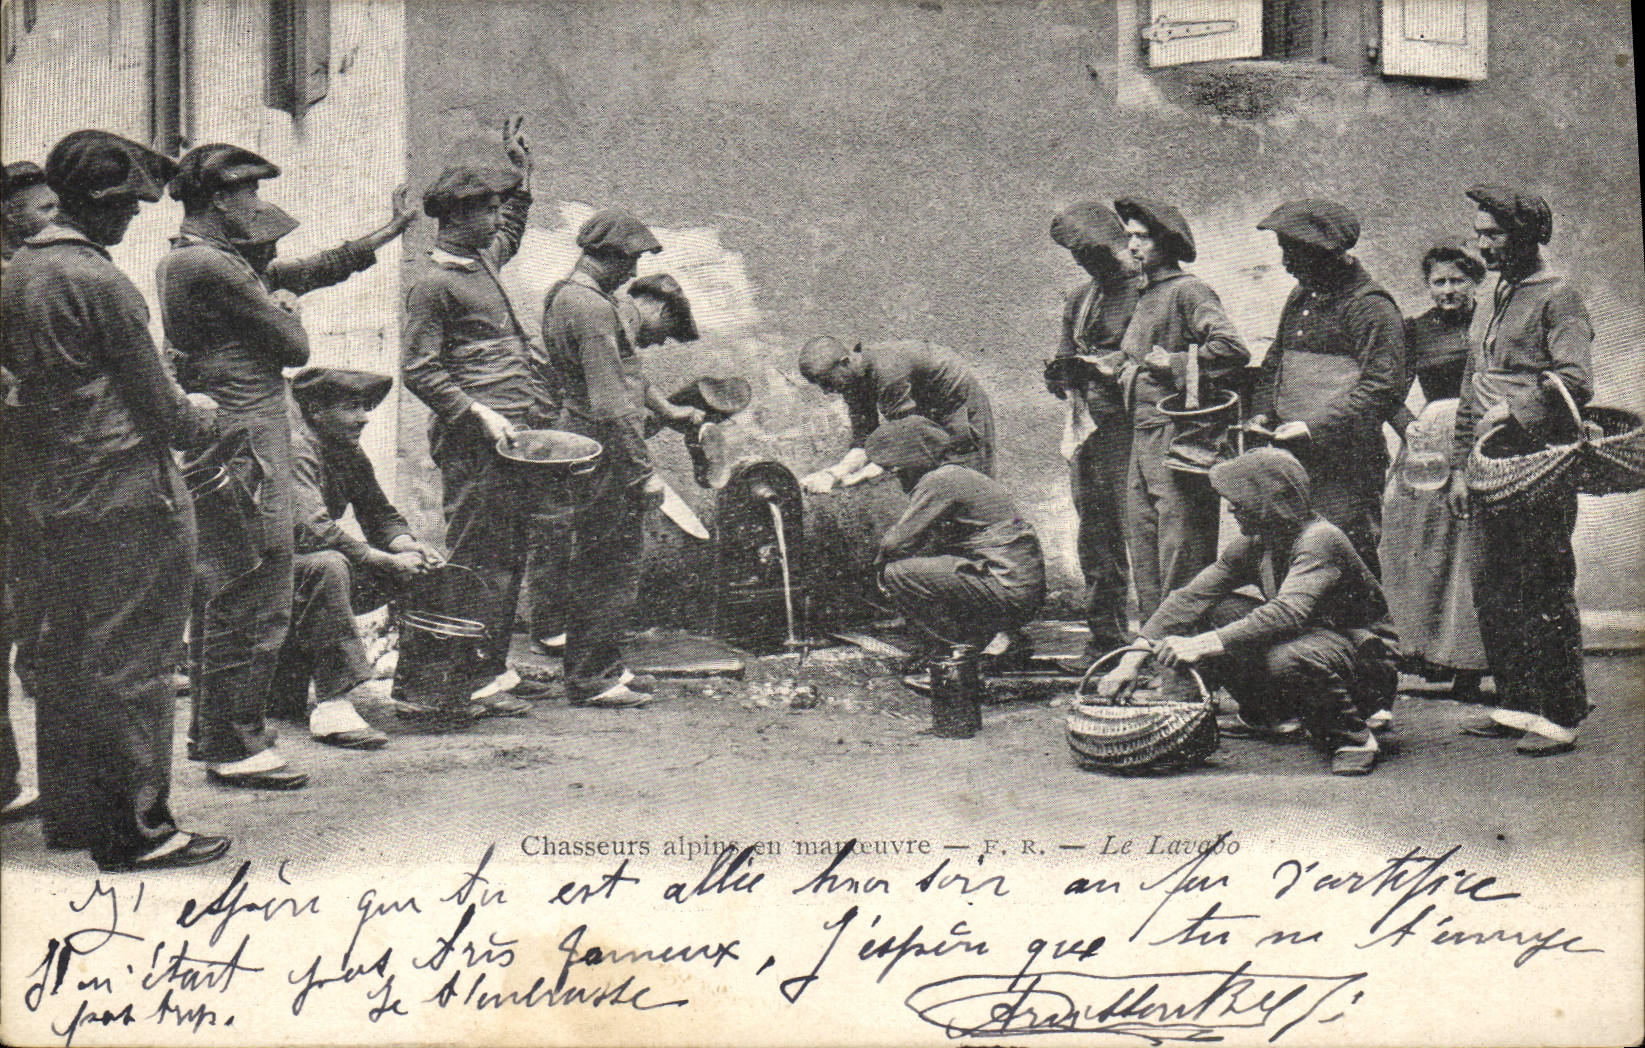 Chasseurs alpins en manœuvre — F. R. — Le Lavabo
J' espère que tu est allée hier soir au feu d'artifice
Il n'était pas très fameux, J'espère que tu ne t'ennuye
pas trop. Je t'embrasse